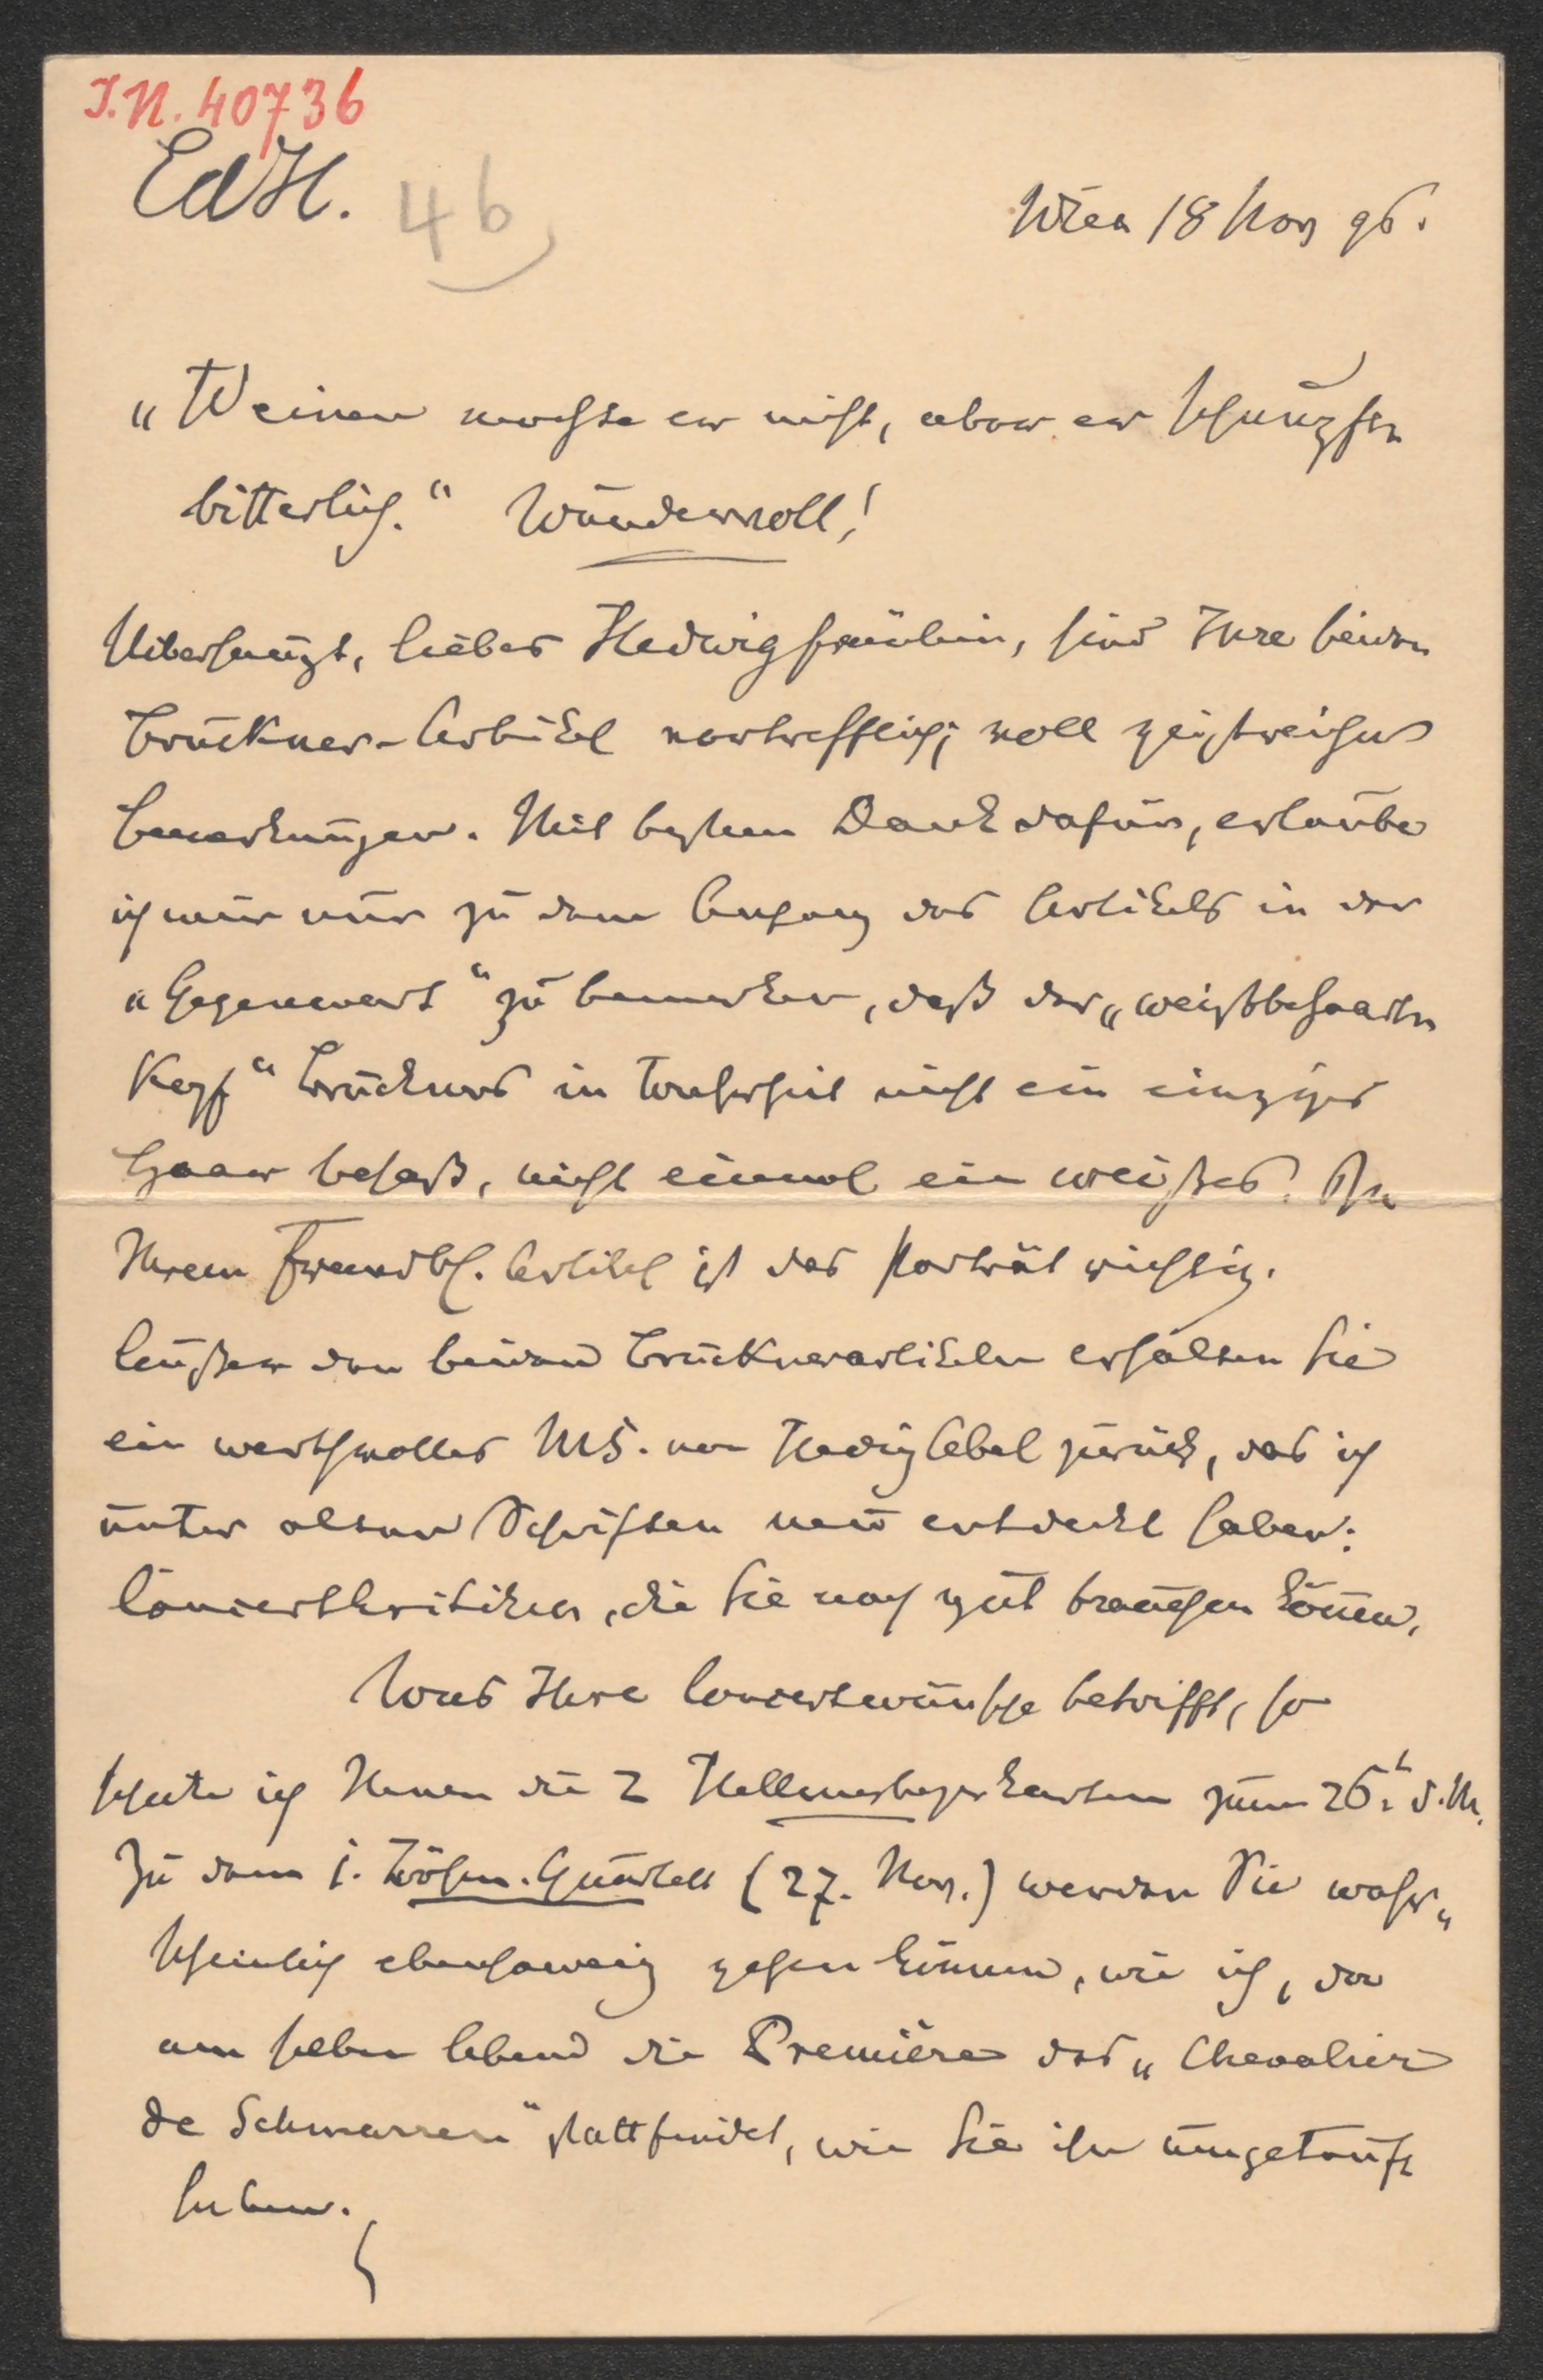 I.N. 40736
EdH.
46
Wien 18 Nov 96.
„Weinen mochte er nicht, aber er schnupfte
bitterlich." Wundervoll!
Ueberhaupt, liebes Hedwigfräulein, sind Ihre beiden
Bruckner-Artikel vortrefflich; voll geistreicher
Bemerkungen. Mit bestem Dank dafür, erlaube
ich mir nur zu dem Anfang des Artikels in der
„Gegenwart" zu bemerken, daß der „weißbehaarte
Kopf" Bruckners in Wahrheit nicht ein einziges
Haar besaß, nicht einmal ein weißes. In
Ihrem Fremdbl. Artikel ist das Porträt richtig.
Außer den beiden Bruckneraartikeln erhalten Sie
ein werthvolles MS. von Hedwig Abel zurück, das ich
unter alten Schriften neu entdeckt habe:
Concertkritiken, die Sie noch gut brauchen können.
Was Ihre Concertwünsche betrifft, so
schicke ich Ihnen die 2 Hellmesbergerkarten zum 26t. d. M.
Zu dem 1. Böhm. Quartett (27. Nov.) werden Sie wahr„
scheinlich ebensowenig gehen können, wie ich, da
am selben Abend die Première des „Chevalier
de Schmarren" stattfindet, wie Sie ihn umgetauft
haben.